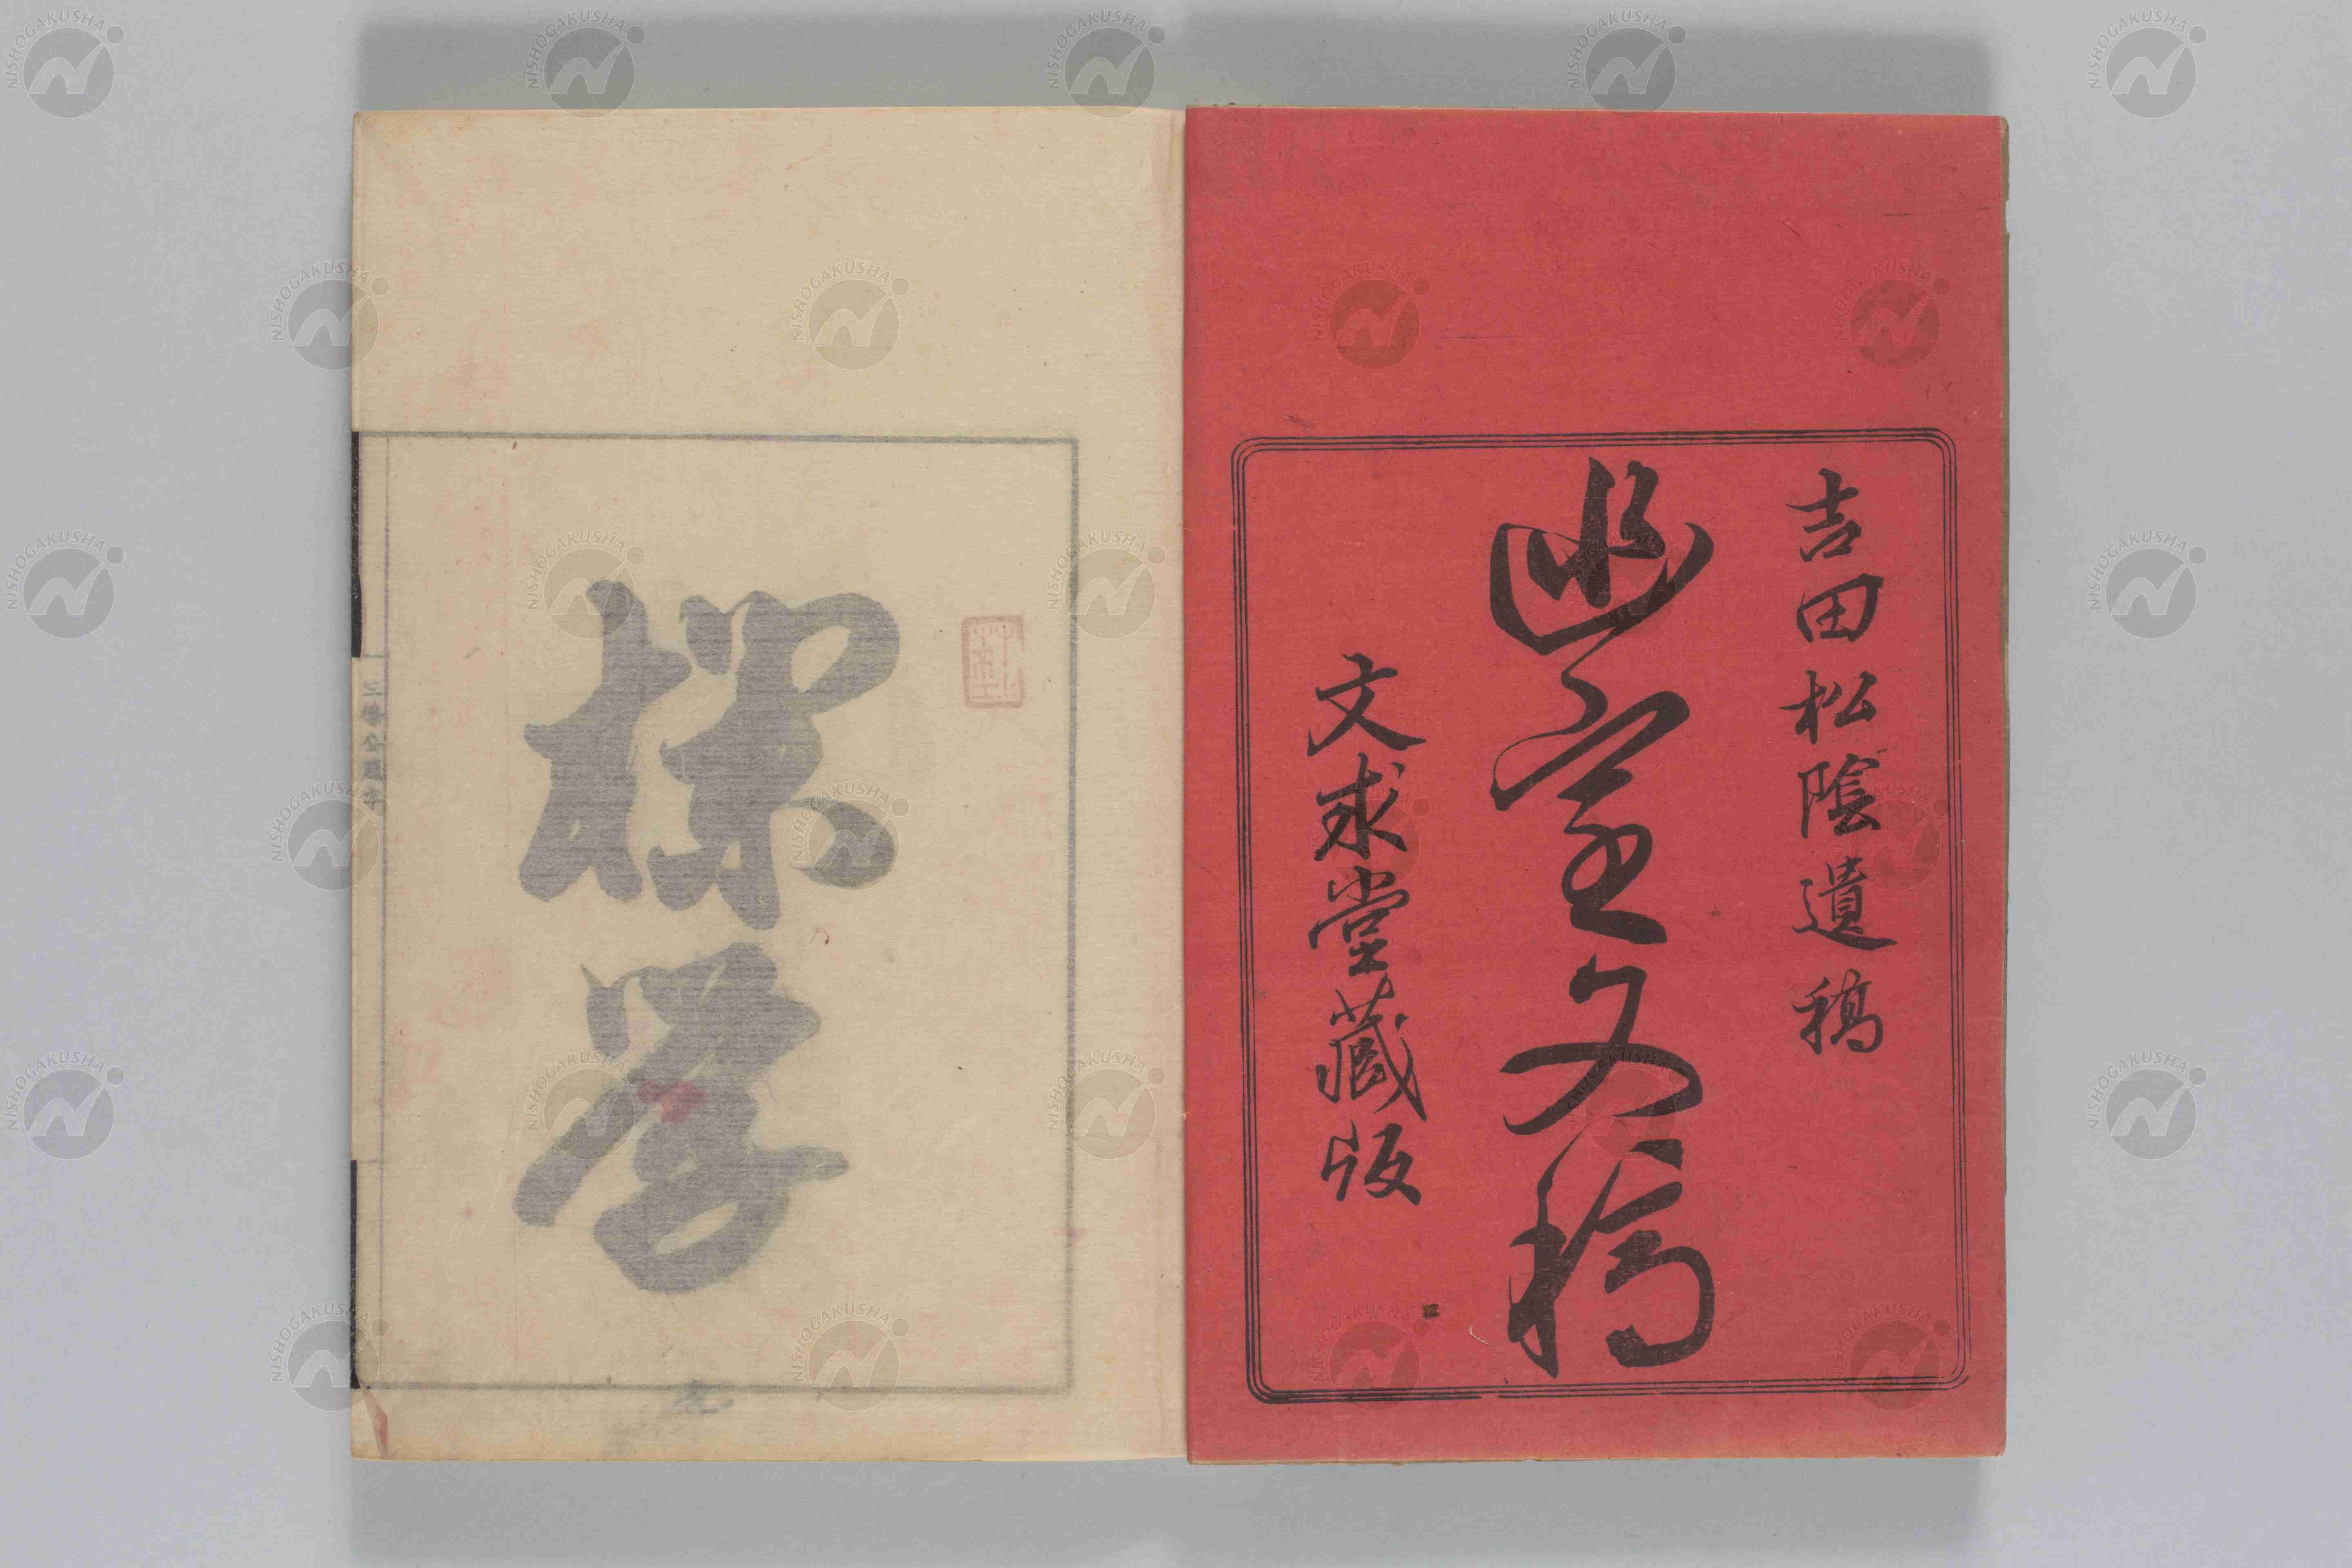 吉田松陰遺稿
幽室文稿
文求堂藏版
學
NISHOGAKUSHA